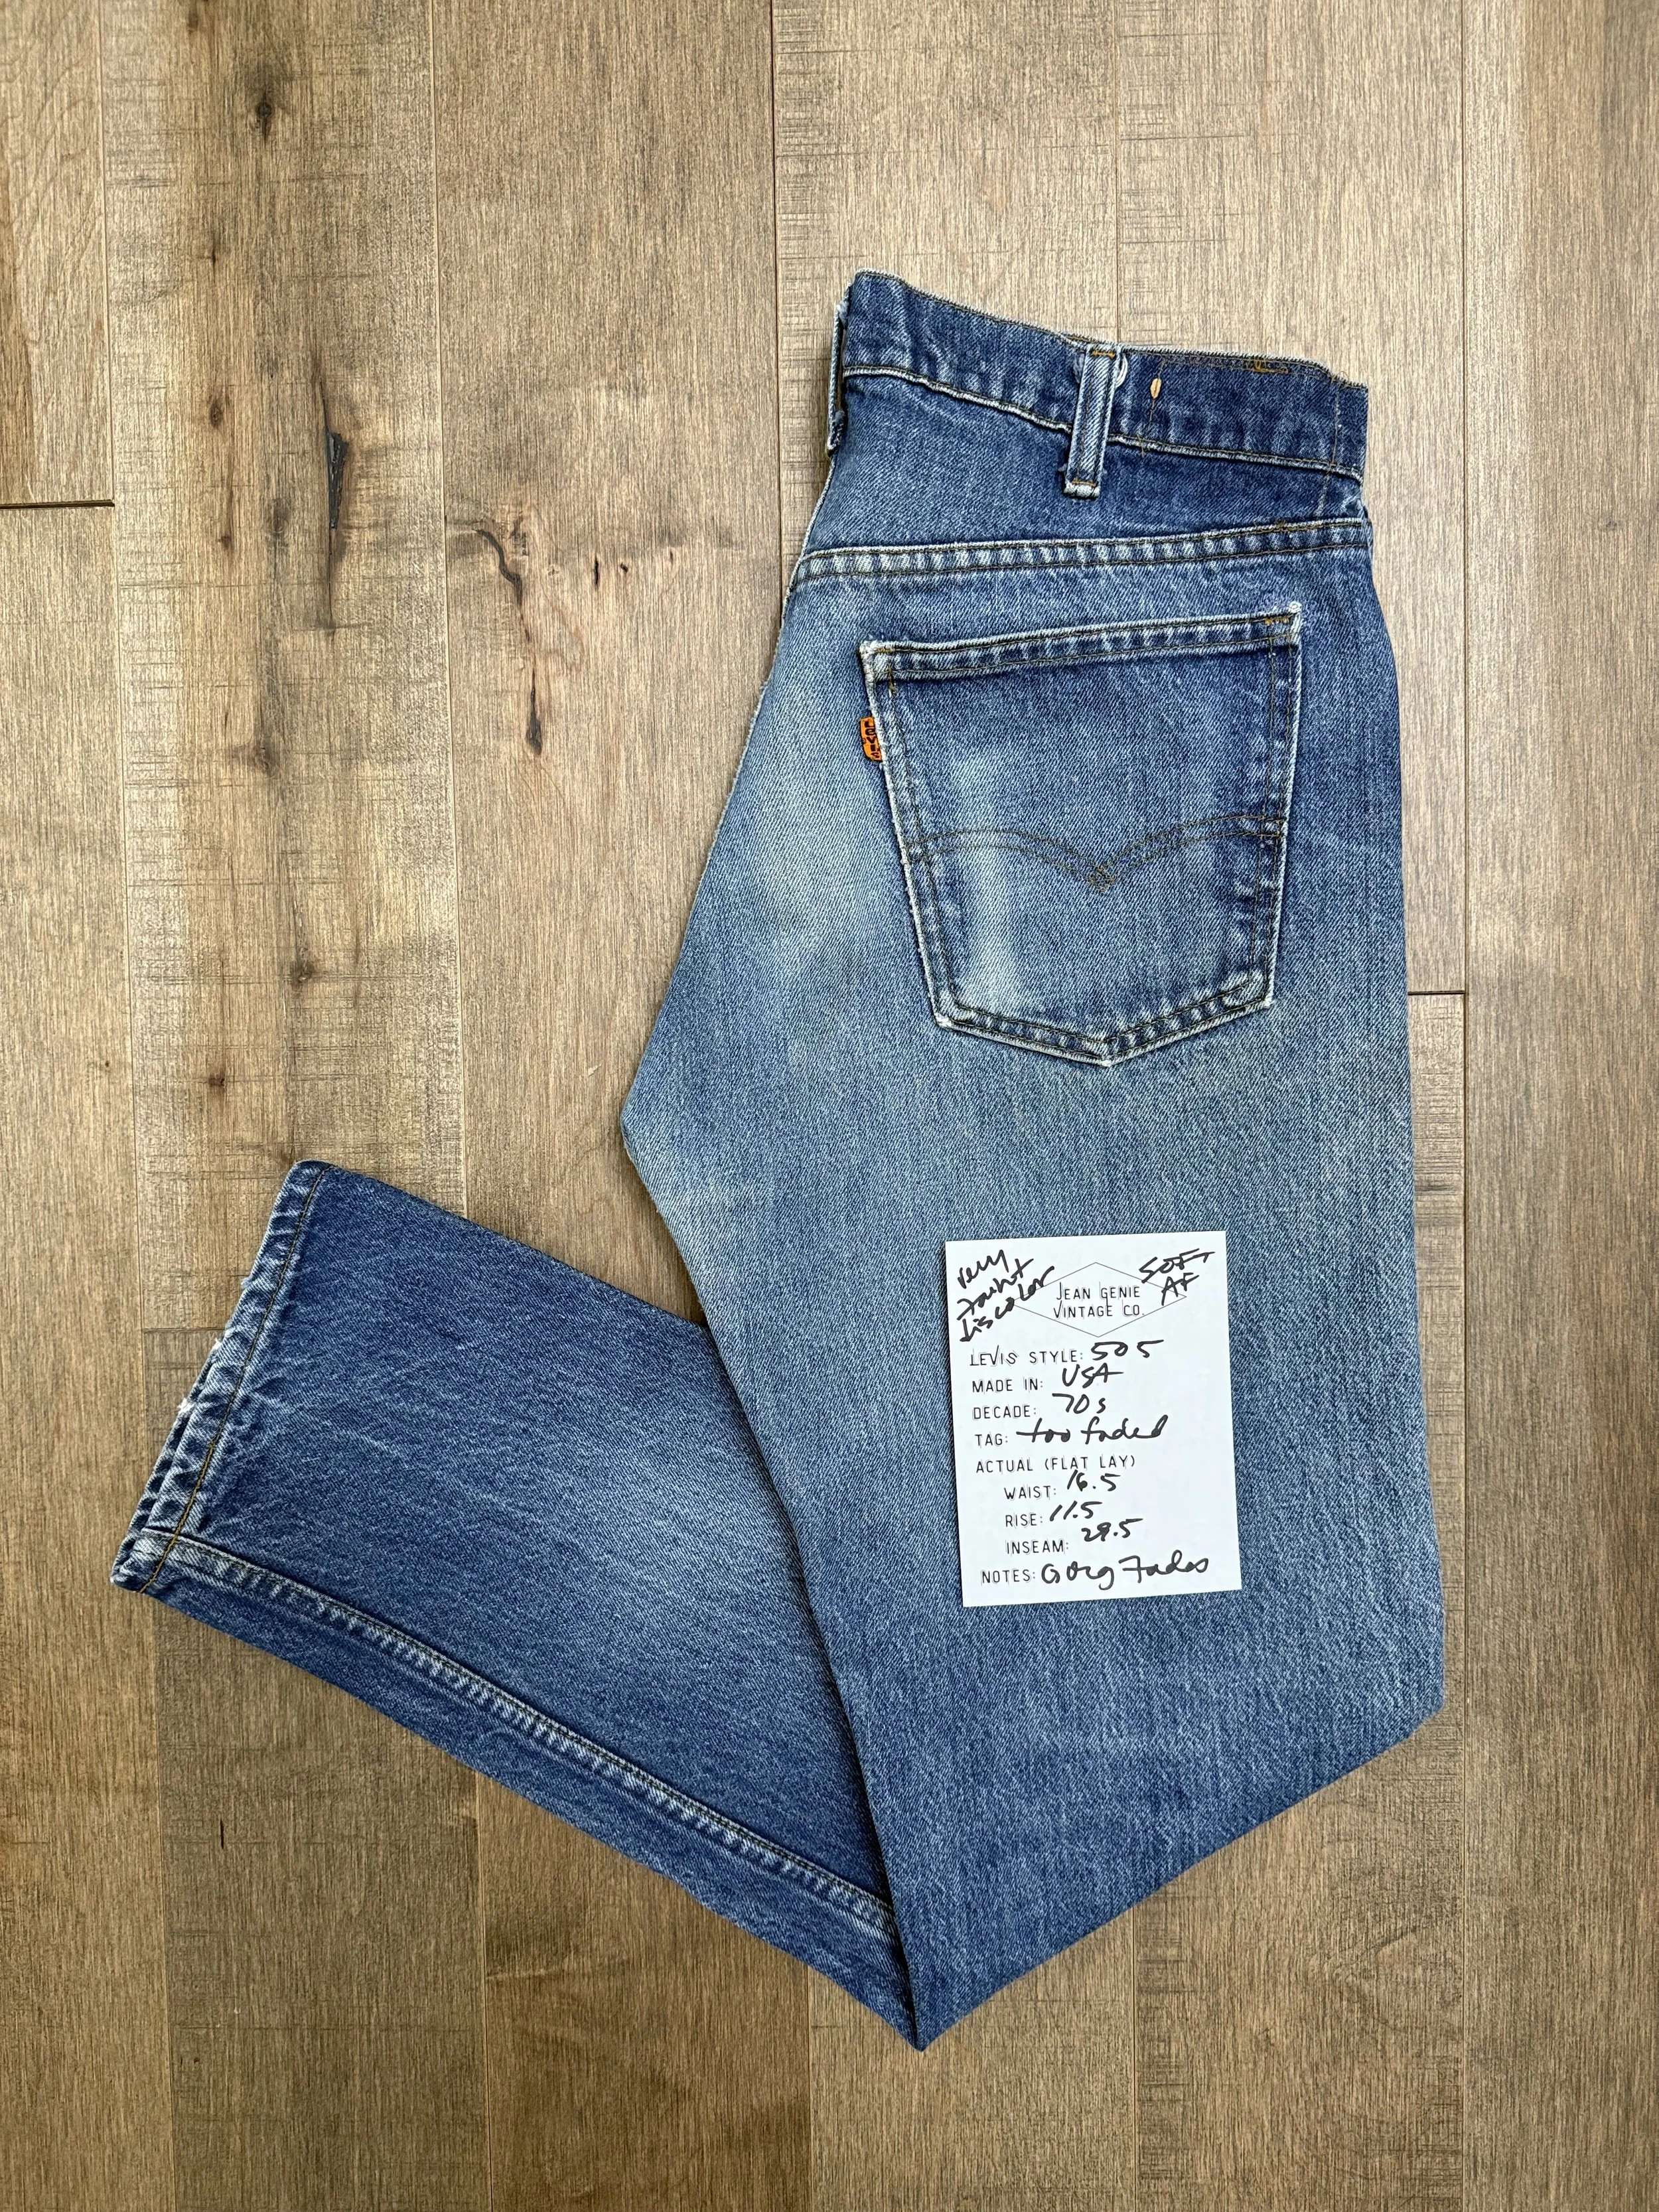 LEVI'S
very
faint
discolor
SOFT
AF
JEAN GENIE
VINTAGE CO.
LEVIS STYLE: 505
MADE IN: USA
DECADE: 70s
TAG: too faded
ACTUAL (FLAT LAY)
WAIST: 16.5
RISE: 11.5
INSEAM: 29.5
NOTES: Gorg Fades